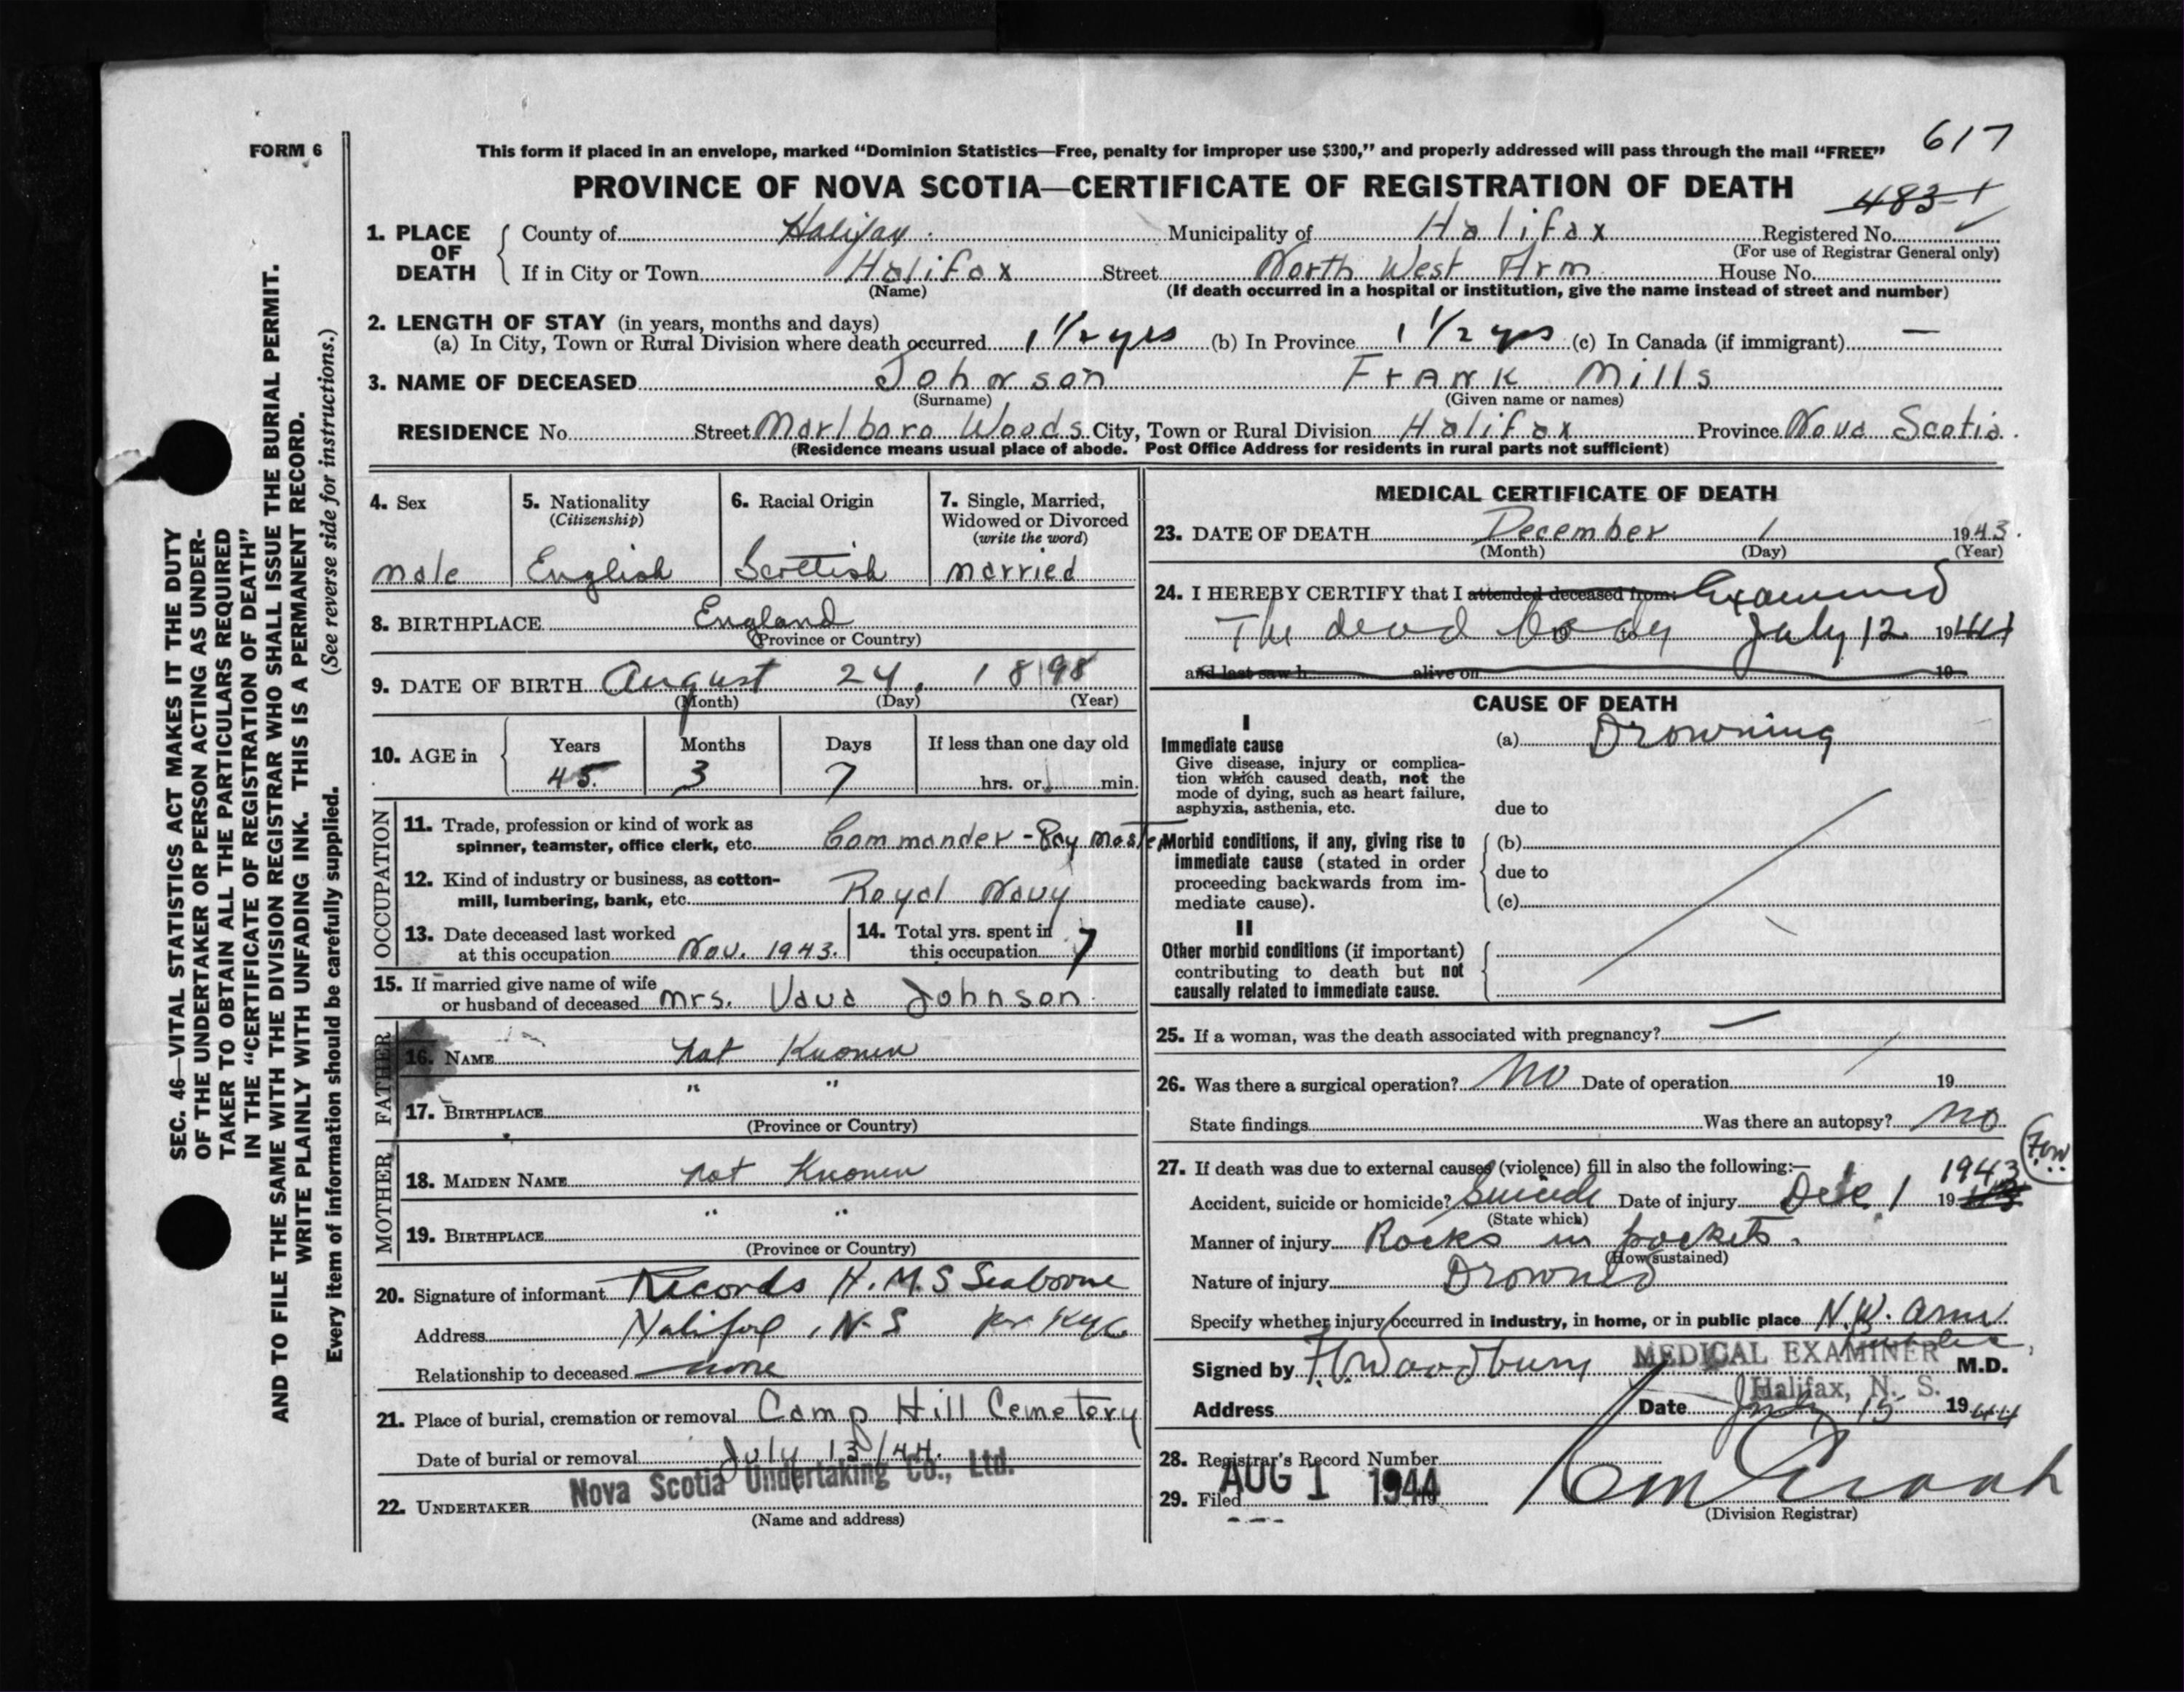 FORM 6
This form if placed in an envelope, marked “Dominion Statistics—Free, penalty for improper use $300,” and properly addressed will pass through the mail “FREE”
617
PROVINCE OF NOVA SCOTIA—CERTIFICATE OF REGISTRATION OF DEATH
483
1. PLACE OF DEATH
County of Halifax Municipality of Halifax Registered No.
(For use of Registrar General only)
If in City or Town Halifax Street North West Arm House No.
(Name) (If death occurred in a hospital or institution, give the name instead of street and number)
2. LENGTH OF STAY (in years, months and days)
(a) In City, Town or Rural Division where death occurred 1 1/2 yrs (b) In Province 1 1/2 yrs (c) In Canada (if immigrant) —
3. NAME OF DECEASED Johnson Frank Mills
(Surname) (Given name or names)
RESIDENCE No. Street Marlboro Woods City, Town or Rural Division Halifax Province Nova Scotia.
(Residence means usual place of abode. Post Office Address for residents in rural parts not sufficient)
4. Sex
male
5. Nationality
(Citizenship)
English
6. Racial Origin
Scottish
7. Single, Married,
Widowed or Divorced
(write the word)
married
8. BIRTHPLACE England
(Province or Country)
9. DATE OF BIRTH August 24, 1898
(Month) (Day) (Year)
10. AGE in Years Months Days If less than one day old
45 3 7 hrs. or min.
OCCUPATION
11. Trade, profession or kind of work as
spinner, teamster, office clerk, etc. Commander - Pay Master
12. Kind of industry or business, as cotton-
mill, lumbering, bank, etc. Royal Navy
13. Date deceased last worked
at this occupation Nov. 1943.
14. Total yrs. spent in
this occupation 7
15. If married give name of wife
or husband of deceased Mrs. Vava Johnson
FATHER
16. NAME not Known
17. BIRTHPLACE " "
(Province or Country)
MOTHER
18. MAIDEN NAME not Known
19. BIRTHPLACE " "
(Province or Country)
20. Signature of informant Records H.M.S Seaborne
Address Halifax, N-S
Relationship to deceased none
21. Place of burial, cremation or removal Camp Hill Cemetery
Date of burial or removal July 13/44.
Nova Scotia Undertaking Co., Ltd.
22. UNDERTAKER
(Name and address)
MEDICAL CERTIFICATE OF DEATH
23. DATE OF DEATH December 1 1943.
(Month) (Day) (Year)
24. I HEREBY CERTIFY that I attended deceased from: Examined
The dead body July 12 1944
and last saw h alive on 19
CAUSE OF DEATH
I
Immediate cause
Give disease, injury or complica-
tion which caused death, not the
mode of dying, such as heart failure,
asphyxia, asthenia, etc.
(a) Drowning
due to
Morbid conditions, if any, giving rise to
immediate cause (stated in order
proceeding backwards from im-
mediate cause).
(b)
due to
(c)
II
Other morbid conditions (if important)
contributing to death but not
causally related to immediate cause.
25. If a woman, was the death associated with pregnancy? —
26. Was there a surgical operation? No Date of operation 19
State findings Was there an autopsy? no
27. If death was due to external causes (violence) fill in also the following:—
1943
Accident, suicide or homicide? Suicide Date of injury Dec. 1 19
(State which)
Manner of injury Rocks in pockets.
(How sustained)
Nature of injury Drowned
Specify whether injury occurred in industry, in home, or in public place N.W. Arm
Signed by F.V. Woodbury MEDICAL EXAMINER M.D.
Halifax, N. S.
Address Date July 15 1944
28. Registrar's Record Number
29. Filed AUG 1 1944
(Division Registrar)
SEC. 46—VITAL STATISTICS ACT MAKES IT THE DUTY
OF THE UNDERTAKER OR PERSON ACTING AS UNDER-
TAKER TO OBTAIN ALL THE PARTICULARS REQUIRED
IN THE “CERTIFICATE OF REGISTRATION OF DEATH”
AND TO FILE THE SAME WITH THE DIVISION REGISTRAR WHO SHALL ISSUE THE BURIAL PERMIT.
WRITE PLAINLY WITH UNFADING INK. THIS IS A PERMANENT RECORD.
Every item of information should be carefully supplied. (See reverse side for instructions.)